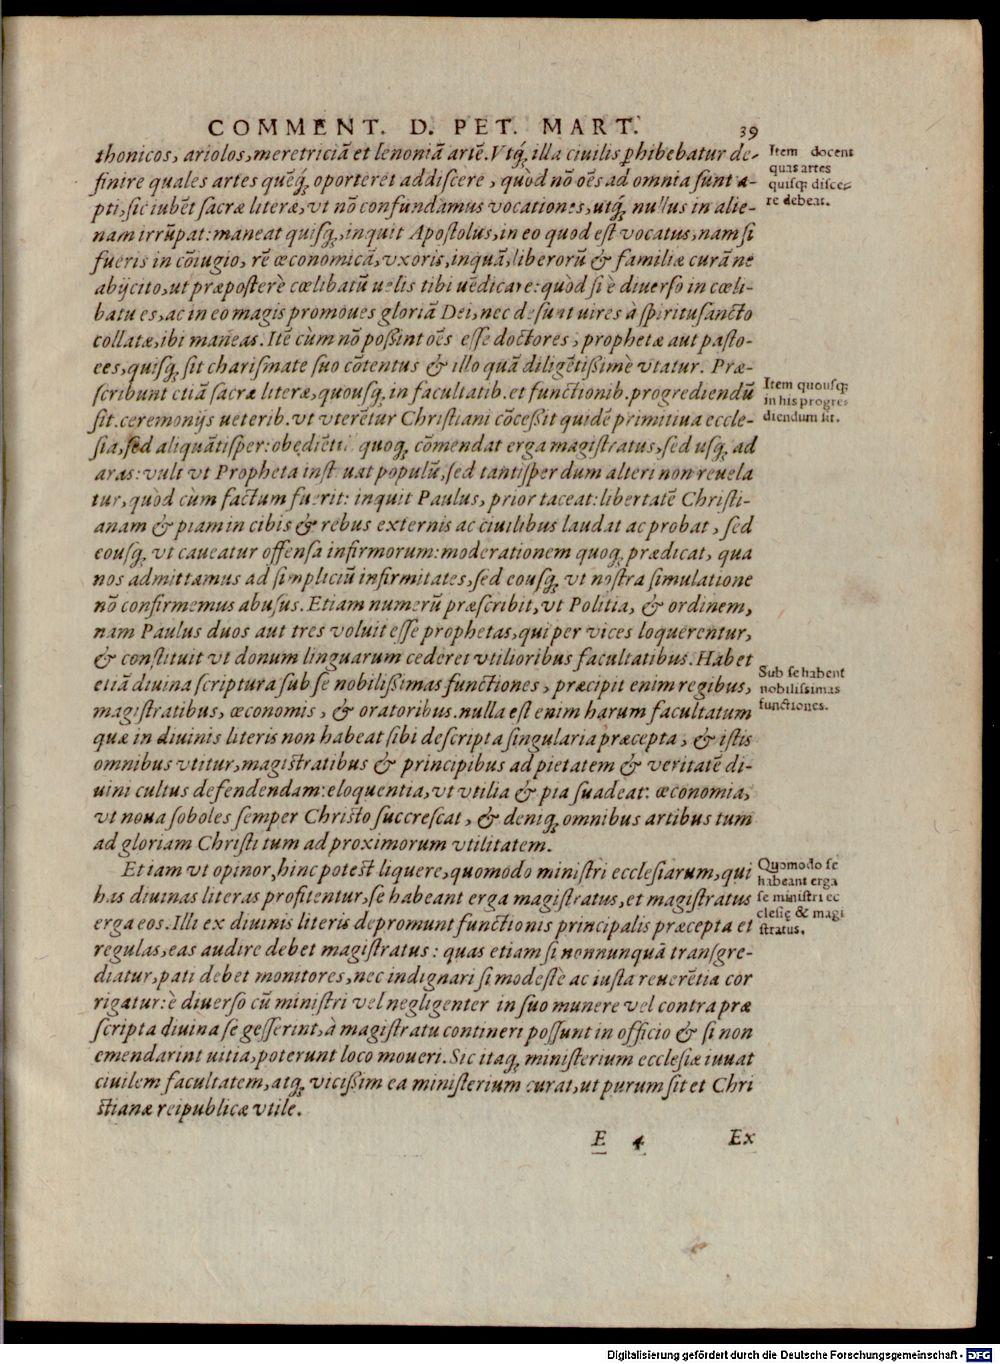 COMMENT. D. PET. MART. 39
thonicos, ariolos, meretriciā et lenoniā artē. Vtq́; illa ciuilis ꝑhibebatur de-
finire quales artes quēq́; oporteret addiscere, quòd nō oēs ad omnia sunt a-
pti, sic iubēt sacræ literæ, vt nō confundamus vocationes, utq́; nullus in alie-
nam irrūpat: maneat quisq;, inquit Apostolus, in eo quod est vocatus, nam si
fueris in cōiugio, rē œconomicā, vxoris, inquā, liberorū & familiæ curā ne
abijcito, ut præposterè cœlibatū uelis tibi uēdicare: quòd si è diuerso in cœli-
batu es, ac in eo magis promoues gloriā Dei, nec desunt uires à spiritusancto
collatæ, ibi maneas. Itē cùm nō possint oēs esse doctores, prophetæ aut pasto-
res, quisq; sit charismate suo cōtentus & illo quā diligētissimè vtatur. Præ-
scribunt etiā sacræ literæ, quousq; in facultatib. et functionib. progrediendū
sit. ceremonijs ueterib. vt vterētur Christiani cōcessit quidē primitiua eccle-
sia, sed aliquātisper: obediētiā quoq; cōmendat erga magistratus, sed usq; ad
aras: vult vt Propheta instituat populū, sed tantisper dum alteri non reuela
tur, quòd cùm factum fuerit: inquit Paulus, prior taceat: libertatē Christi-
anam & piam in cibis & rebus externis ac ciuilibus laudat ac probat, sed
eousq; vt caueatur offensa infirmorum: moderationem quoq; prædicat, qua
nos admittamus ad simpliciū infirmitates, sed eousq; vt nostra simulatione
nō confirmemus abusus. Etiam numerū præscribit, vt Politia, & ordinem,
nam Paulus duos aut tres voluit esse prophetas, qui per vices loquerentur,
& constituit vt donum linguarum cederet vtilioribus facultatibus. Habet
etiā diuina scriptura sub se nobilissimas functiones, præcipit enim regibus,
magistratibus, œconomis, & oratoribus. nulla est enim harum facultatum
quæ in diuinis literis non habeat sibi descripta singularia præcepta, & istis
omnibus vtitur, magistratibus & principibus ad pietatem & veritatē di-
uini cultus defendendam: eloquentia, vt vtilia & pia suadeat: œconomia,
vt noua soboles semper Christo succrescat, & deniq; omnibus artibus tum
ad gloriam Christi tum ad proximorum vtilitatem.
Etiam vt opinor, hinc potest liquere, quomodo ministri ecclesiarum, qui
has diuinas literas profitentur, se habeant erga magistratus, et magistratus
erga eos. Illi ex diuinis literis depromunt functionis principalis præcepta et
regulas, eas audire debet magistratus: quas etiam si nonnunquā transgre-
diatur, pati debet monitores, nec indignari si modestè ac iusta reuerētia cor
rigatur: è diuerso cū ministri vel negligenter in suo munere vel contra præ
scripta diuina se gesserint, à magistratu contineri possunt in officio & si non
emendarint uitia, poterunt loco moueri. Sic itaq; ministerium ecclesiæ iuuat
ciuilem facultatem, atq; vicissim ea ministerium curat, ut purum sit et Chri
stianæ reipublicæ vtile.
E 4 Ex
Item docent
quas artes
quisq; disce-
re debeat.
Item quousq;
in his progre-
diendum sit.
Sub se habent
nobilissimas
functiones.
Quomodo se
habeant erga
se ministri ec
clesię & magi
stratus.
Digitalisierung gefördert durch die Deutsche Forschungsgemeinschaft - DFG